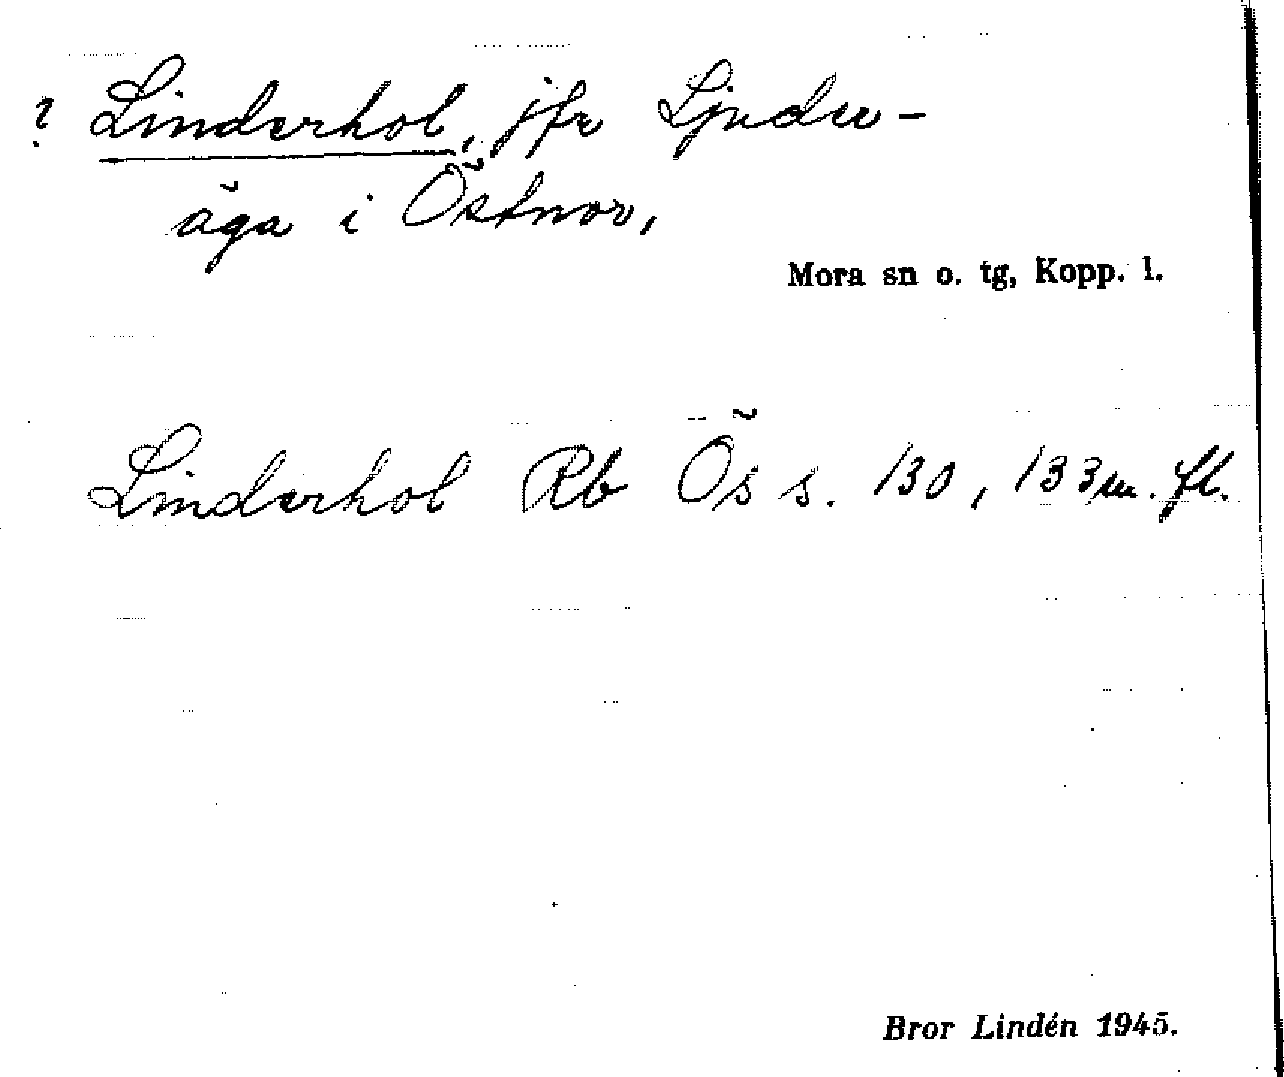 ? Linderhol, jfr Ljuder-
äga i Östnor,
Mora sn o. tg, Kopp. l.
Linderhol Rb Ös s. 130, 133 m. fl.
Bror Lindén 1945.